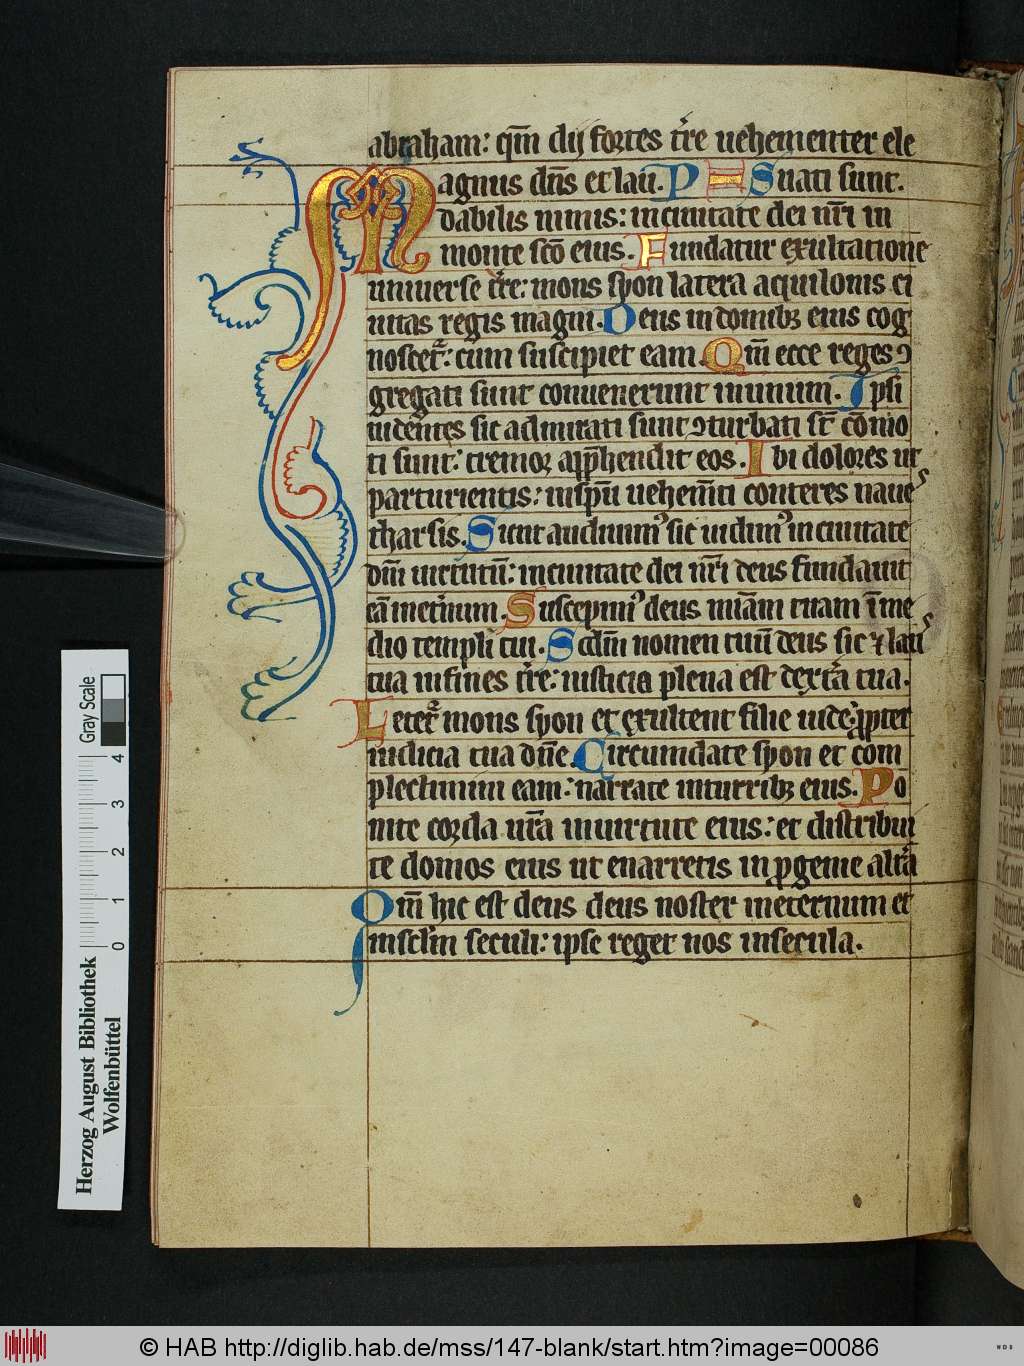 abraham: qm̄ dij fortes t̄re uehementer ele
Magnus dn̄s et lau. P H S uati sunt.
dabilis nimis: inciuitate dei nr̄i in
monte scō eius. Fundatur exultatione
uniuerse t̄re: mons syon latera aquilonis ci
uitas regis magni. Deus indomibꝫ eius cog
noscet᷑: cum suscipiet eam. Qm̄ ecce reges ꝯ
gregati sunt conuenerunt inunum. Ipsi
uidentes sic admirati sunt ꝯturbati st̄ cōmo
ti sunt: tremor app̄hendit eos. Ibi dolores ut
parturientis: insp̄u uehem̄ti conteres naues
tharsis. Sicut audiuim᷒ sic uidim᷒ inciuitate
dn̄i uirtutū: inciuitate dei nr̄i deus fundauit
eā ineternum. Suscepim᷒ deus mīam tuam ī me
dio templi tui. Scd̄m nomen tuū deus sic ⁊ laus
tua infines t̄re: iusticia plena est dext̄a tua.
Letet᷑ mons syon et exultent filie iude: ꝓpter
iudicia tua dn̄e. Circumdate syon et com
plectimini eam: narrate inturribꝫ eius. Po
nite corda ur̄a inuirtute eius: et distribui
te domos eius ut enarretis in ꝓgenie alt̄a
Qm̄ hic est deus deus noster ineternum et
insclm̄ seculi: ipse reget nos insecula.
Gray Scale
4 3 2 1 0
Herzog August Bibliothek
Wolfenbüttel
© HAB http://diglib.hab.de/mss/147-blank/start.htm?image=00086